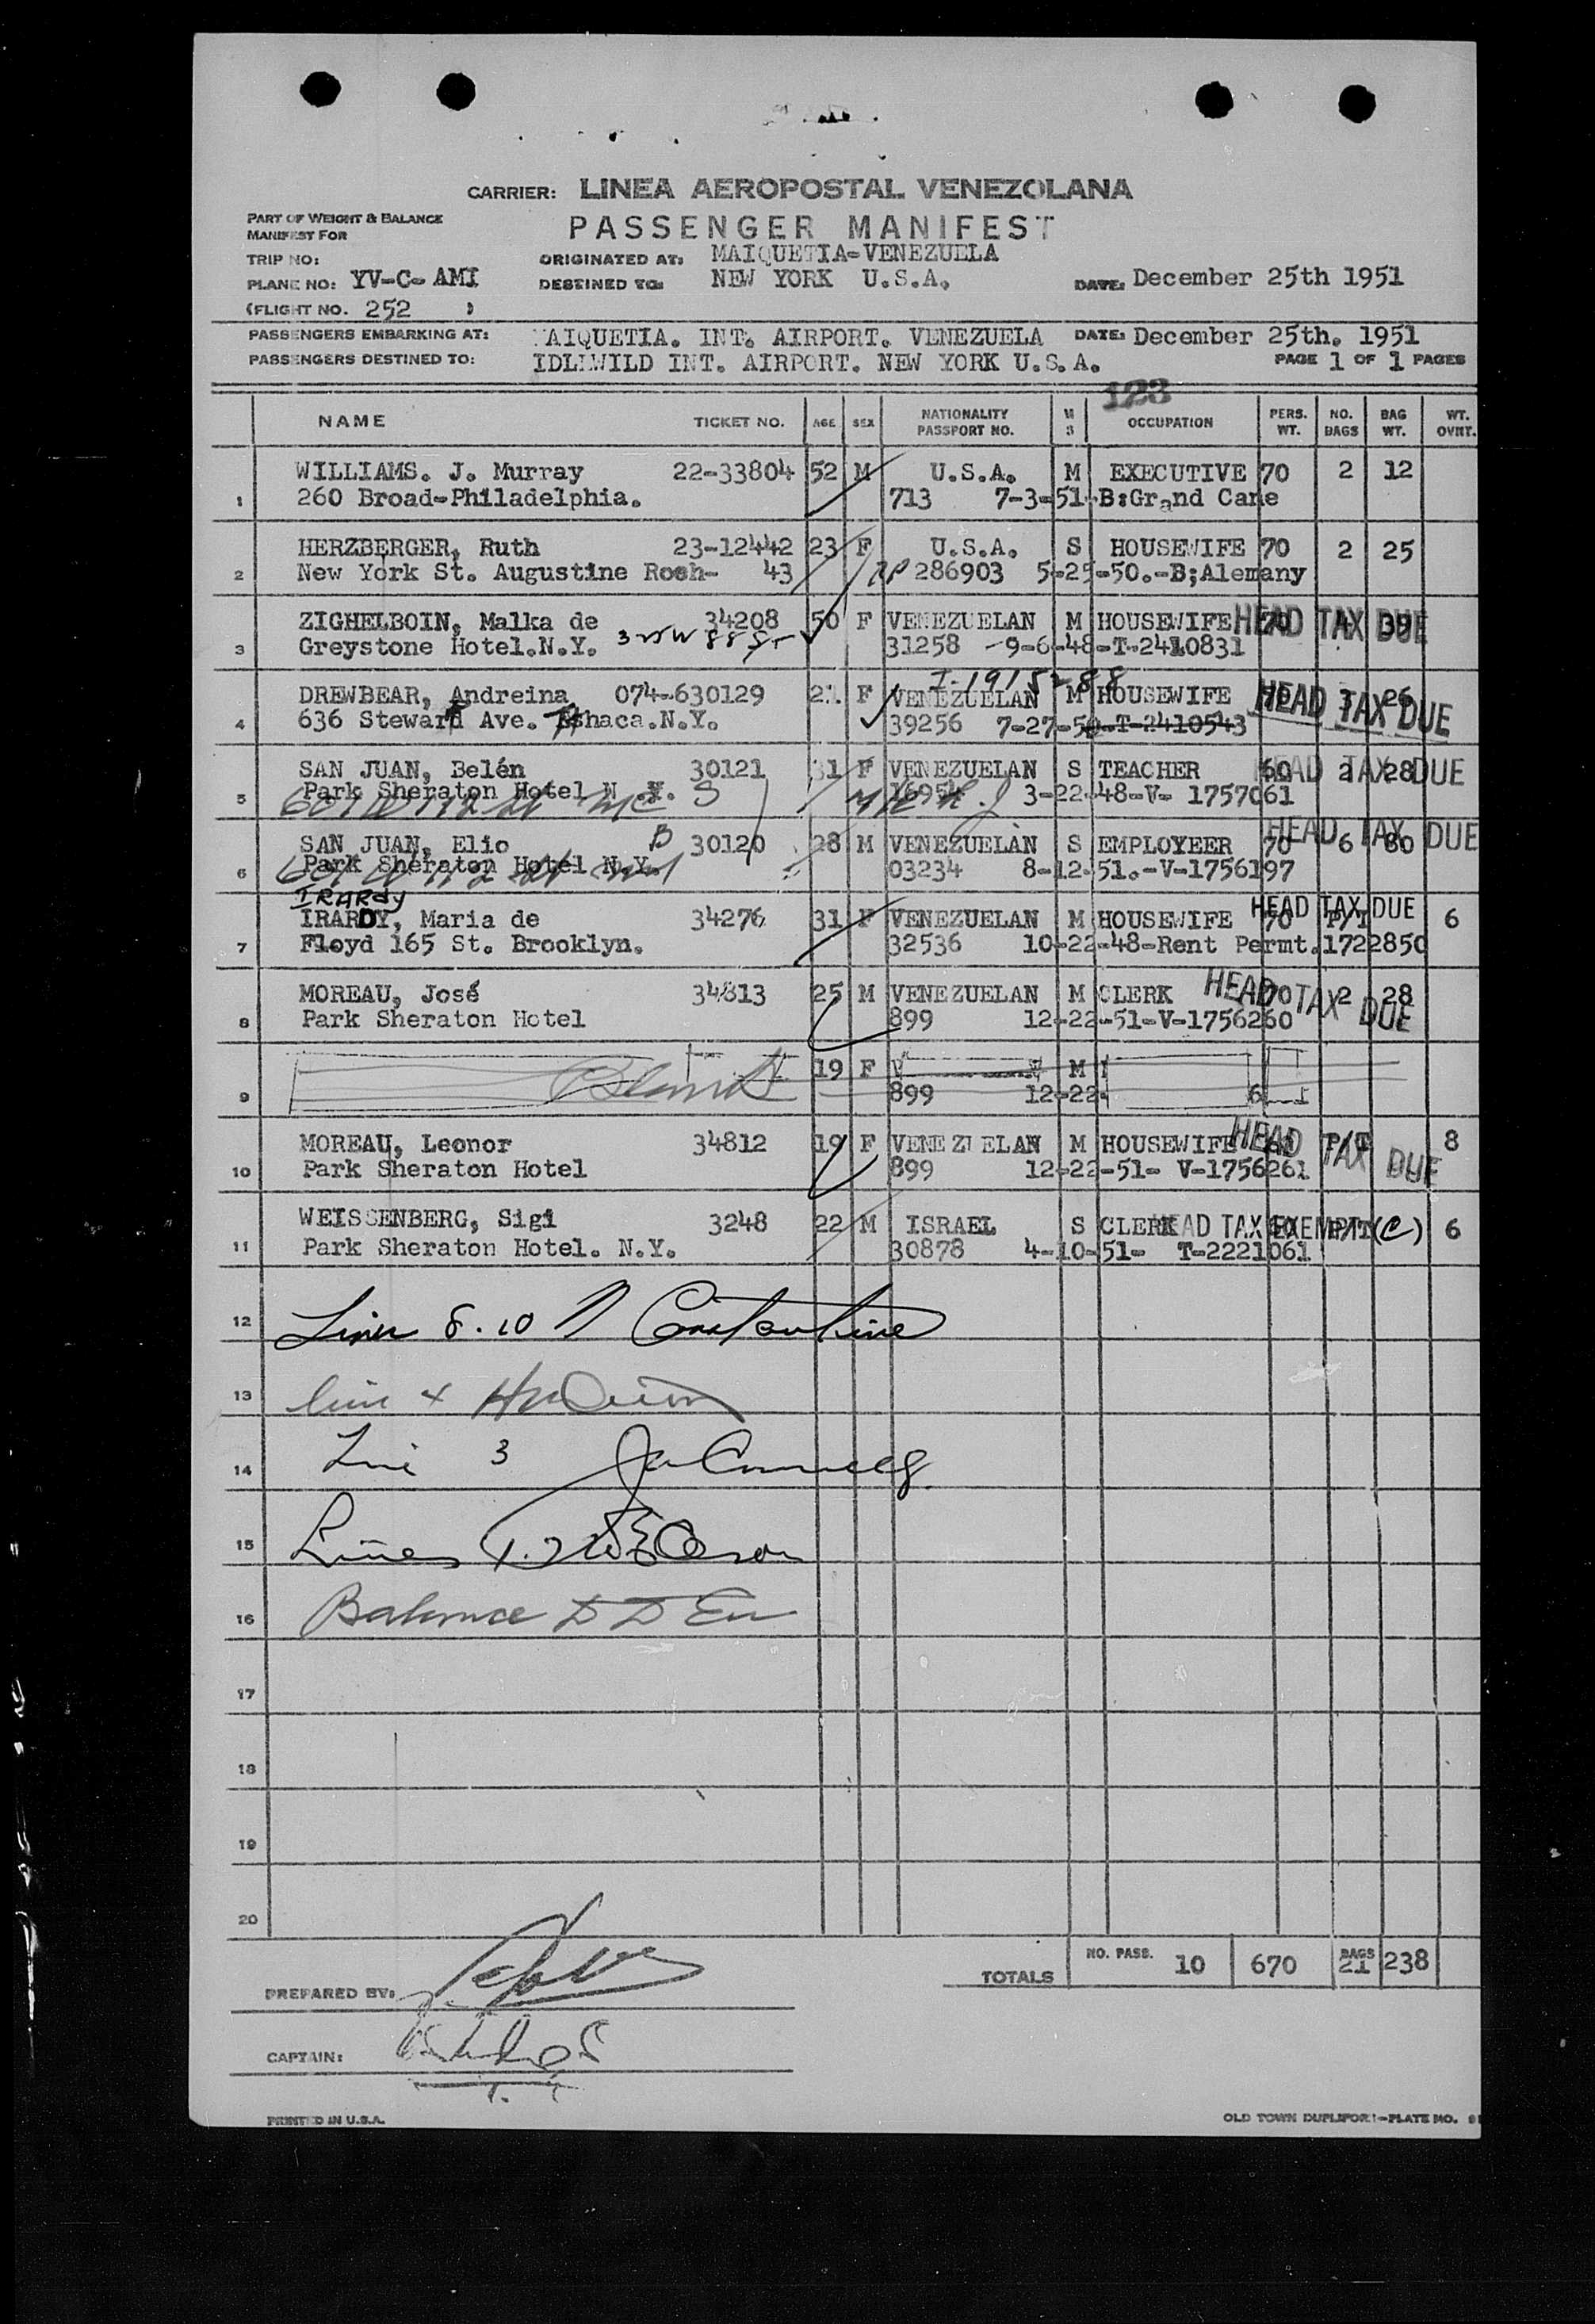 CARRIER: LINEA AEROPOSTAL VENEZOLANA
PART OF WEIGHT & BALANCE
MANIFEST FOR
PASSENGER MANIFEST
TRIP NO:
ORIGINATED AT: MAIQUETIA-VENEZUELA
PLANE NO: YV-C-AMI
DESTINED TO: NEW YORK U.S.A. DATE: December 25th 1951
(FLIGHT NO. 252 )
PASSENGERS EMBARKING AT: MAIQUETIA. INT. AIRPORT. VENEZUELA DATE: December 25th. 1951
PASSENGERS DESTINED TO: IDLEWILD INT. AIRPORT. NEW YORK U.S.A. PAGE 1 OF 1 PAGES
123
NAME TICKET NO. AGE SEX NATIONALITY PASSPORT NO. M S OCCUPATION PERS. WT. NO. BAGS BAG WT. WT. OVNT.
WILLIAMS. J. Murray 22-33804 52 M U.S.A. M EXECUTIVE 70 2 12
1 260 Broad-Philadelphia. 713 7-3-51-B:Grand Cane
HERZBERGER, Ruth 23-12442 23 F U.S.A. S HOUSEWIFE 70 2 25
2 New York St. Augustine Rosh- 43 286903 5-25-50.-B;Alemany
ZIGHELBOIN, Malka de 34208 50 F VENEZUELAN M HOUSEWIFE 70 4 39 HEAD TAX DUE
3 Greystone Hotel.N.Y. 31258 -9-6-48-T-2410831
I-1915288
DREWBEAR, Andreina 074-630129 21 F VENEZUELAN M HOUSEWIFE 70 3 26 HEAD TAX DUE
4 636 Steward Ave. Ithaca.N.Y. 39256 7-27-50-T-2410543
SAN JUAN, Belén 30121 31 F VENEZUELAN S TEACHER 60 2 28 HEAD TAX DUE
5 Park Sheraton Hotel N.Y. 3 3-22-48-V- 1757061
SAN JUAN, Elio B 30120 28 M VENEZUELAN S EMPLOYEER 70 6 80 HEAD TAX DUE
6 Park Sheraton Hotel N.Y. 03234 8-12-51.-V-1756197
IRARDY
IRARDY, Maria de 34276 31 F VENEZUELAN M HOUSEWIFE 70 P/T 6 HEAD TAX DUE
7 Floyd 165 St. Brooklyn. 32536 10-22-48-Rent Permt.1722850
MOREAU, José 34813 25 M VENEZUELAN M CLERK 70 2 28 HEAD TAX DUE
8 Park Sheraton Hotel 899 12-22-51-V-1756260
Blank 19 F M
9 899 12-22- 6
MOREAU, Leonor 34812 19 F VENEZUELAN M HOUSEWIFE P/T 8 HEAD TAX DUE
10 Park Sheraton Hotel 899 12-22-51- V-1756261
WEISSENBERG, Sigi 3248 22 M ISRAEL S CLERK P/T 6 HEAD TAX EXEMPT (C)
11 Park Sheraton Hotel. N.Y. 30878 4-10-51- T-2221061
12 8.10 Constantine
13 line 4
14 Line 3
15 Lines
16 Balance
17
18
19
20
TOTALS NO. PASS. 10 670 BAGS 21 238
PREPARED BY:
CAPTAIN:
PRINTED IN U.S.A.
OLD TOWN DUPLIFORM-PLATE NO.